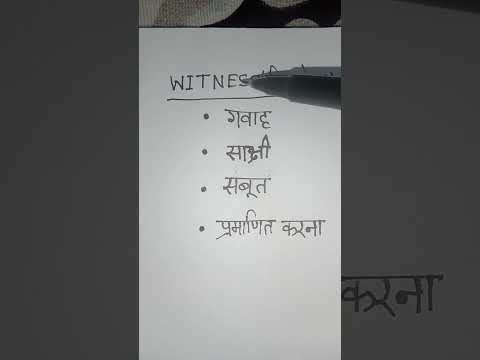 WITNES
• गवाह
• साक्षी
• सबूत
• प्रमाणित करना
करना